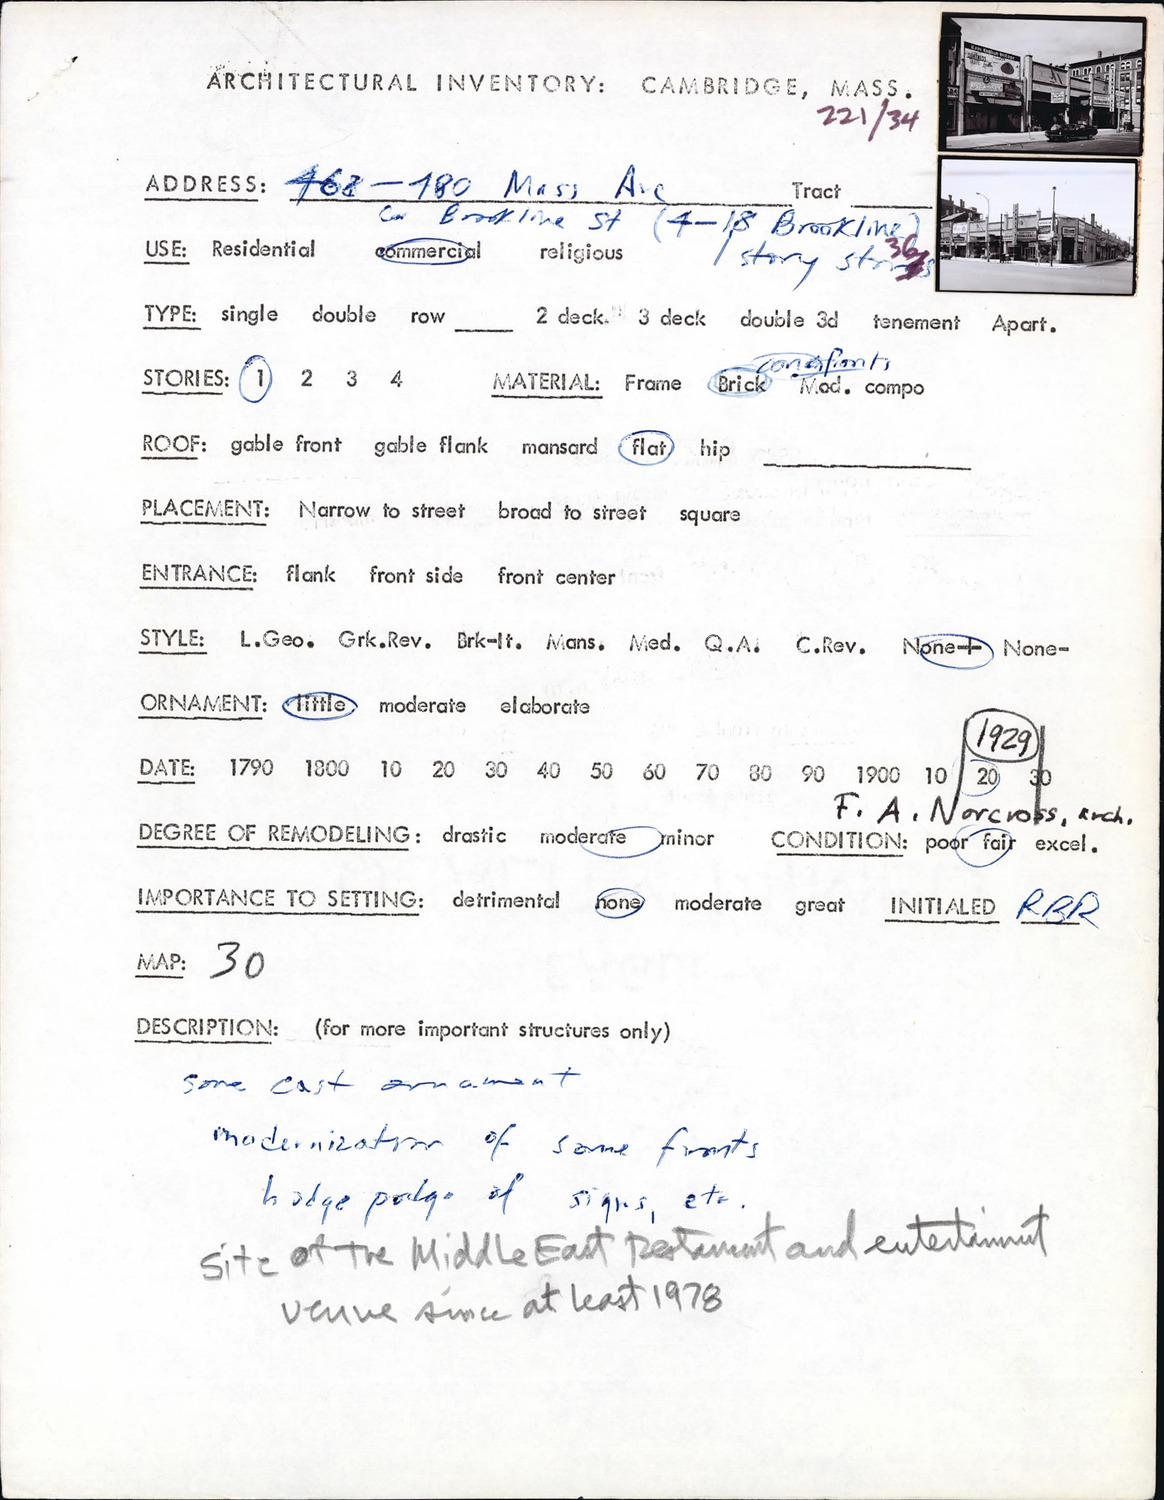 ARCHITECTURAL INVENTORY: CAMBRIDGE, MASS.
221/34
ADDRESS: 468-480 Mass Ave Tract
Cor Brookline St (4-18 Brookline)
USE: Residential commercial religious 1 story stores
36
TYPE: single double row 2 deck. 3 deck double 3d tenement Apart.
STORIES: 1 2 3 4 MATERIAL: Frame Brick Mod. compo
ROOF: gable front gable flank mansard flat hip
PLACEMENT: Narrow to street broad to street square
ENTRANCE: flank front side front center
STYLE: L.Geo. Grk.Rev. Brk-It. Mans. Med. Q.A. C.Rev. None+ None-
ORNAMENT: little moderate elaborate
1929
DATE: 1790 1800 10 20 30 40 50 60 70 80 90 1900 10 20 30
F. A. Norcross, arch.
DEGREE OF REMODELING: drastic moderate minor CONDITION: poor fair excel.
IMPORTANCE TO SETTING: detrimental none moderate great INITIALED RBR
MAP: 30
DESCRIPTION: (for more important structures only)
some cast ornament
modernization of some fronts
hodge podge of signs, etc.
Site of the Middle East Restaurant and entertainment
venue since at least 1978